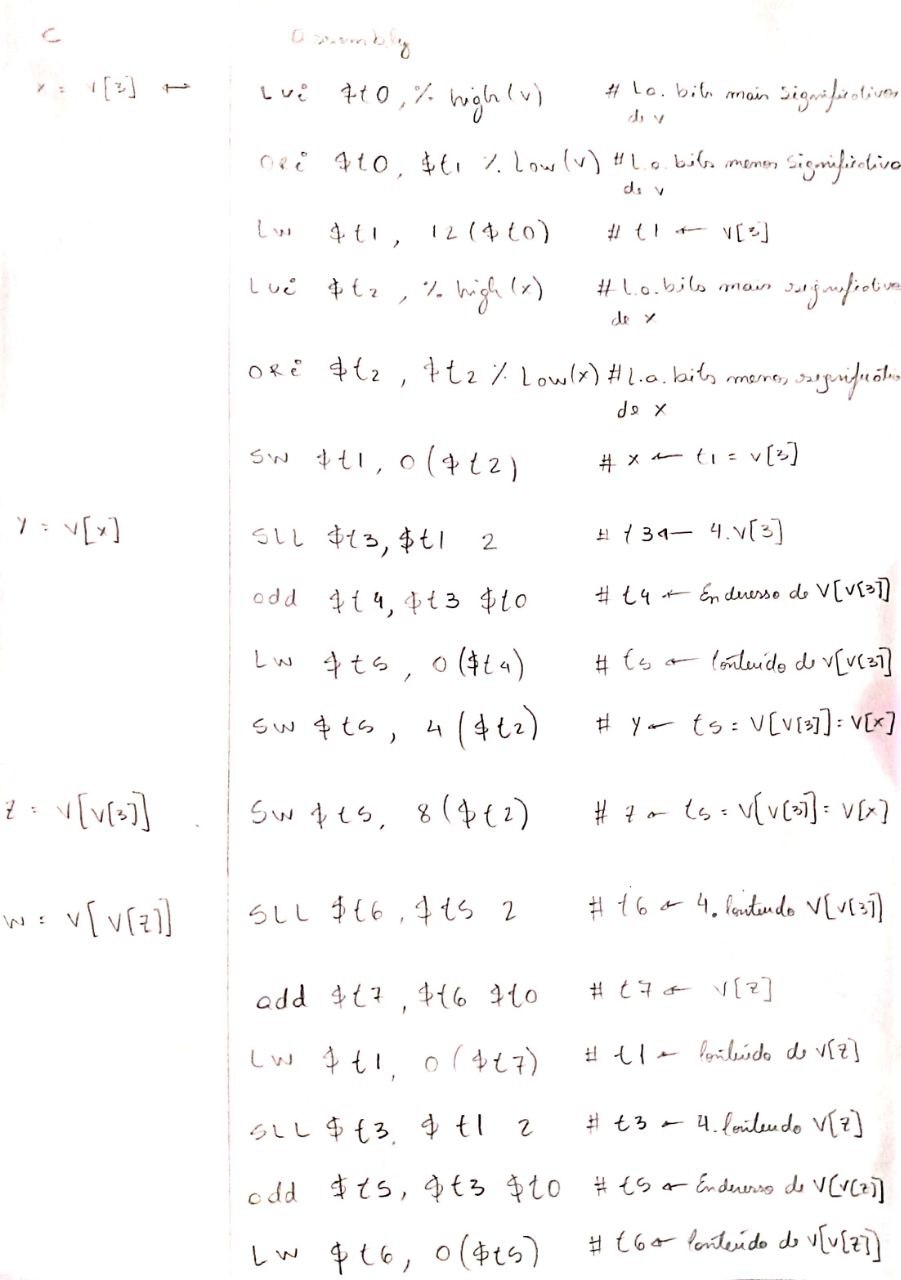 C assembly
x = v[3] ↔ Lui $t0, % high(v) # L.a. bits mais significativos
de v
ORi $t0, $t1 % Low(v) # L.a. bits menos significativo
de v
Lw $t1, 12($t0) # t1 ← v[3]
Lui $t2, % high(x) # L.a. bits mais significativa
de x
ORi $t2, $t2 % Low(x) # L.a. bits menos
de x
SW $t1, 0($t2) # x ← t1 = v[3]
y = v[x] SLL $t3, $t1 2 # t3 ← 4.v[3]
add $t4, $t3 $t0 # t4 ← Enderesso de V[V[3]]
LW $t5, 0($t4) # t5 ← Conteúdo de v[v[3]]
SW $t5, 4($t2) # y ← t5 = V[V[3]] = V[x]
z = v[v[3]] SW $t5, 8($t2) # z ← t5 = V[V[3]] = V[x]
w = v[v[z]] SLL $t6, $t5 2 # t6 ← 4. Conteudo V[V[3]]
add $t7, $t6 $t0 # t7 ← v[z]
LW $t1, 0($t7) # t1 ← Conteúdo de v[z]
SLL $t3, $t1 2 # t3 ← 4. Conteudo V[z]
add $t5, $t3 $t0 # t5 ← Enderesso de V[V[z]]
LW $t6, 0($t5) # t6 ← Conteúdo de v[v[z]]